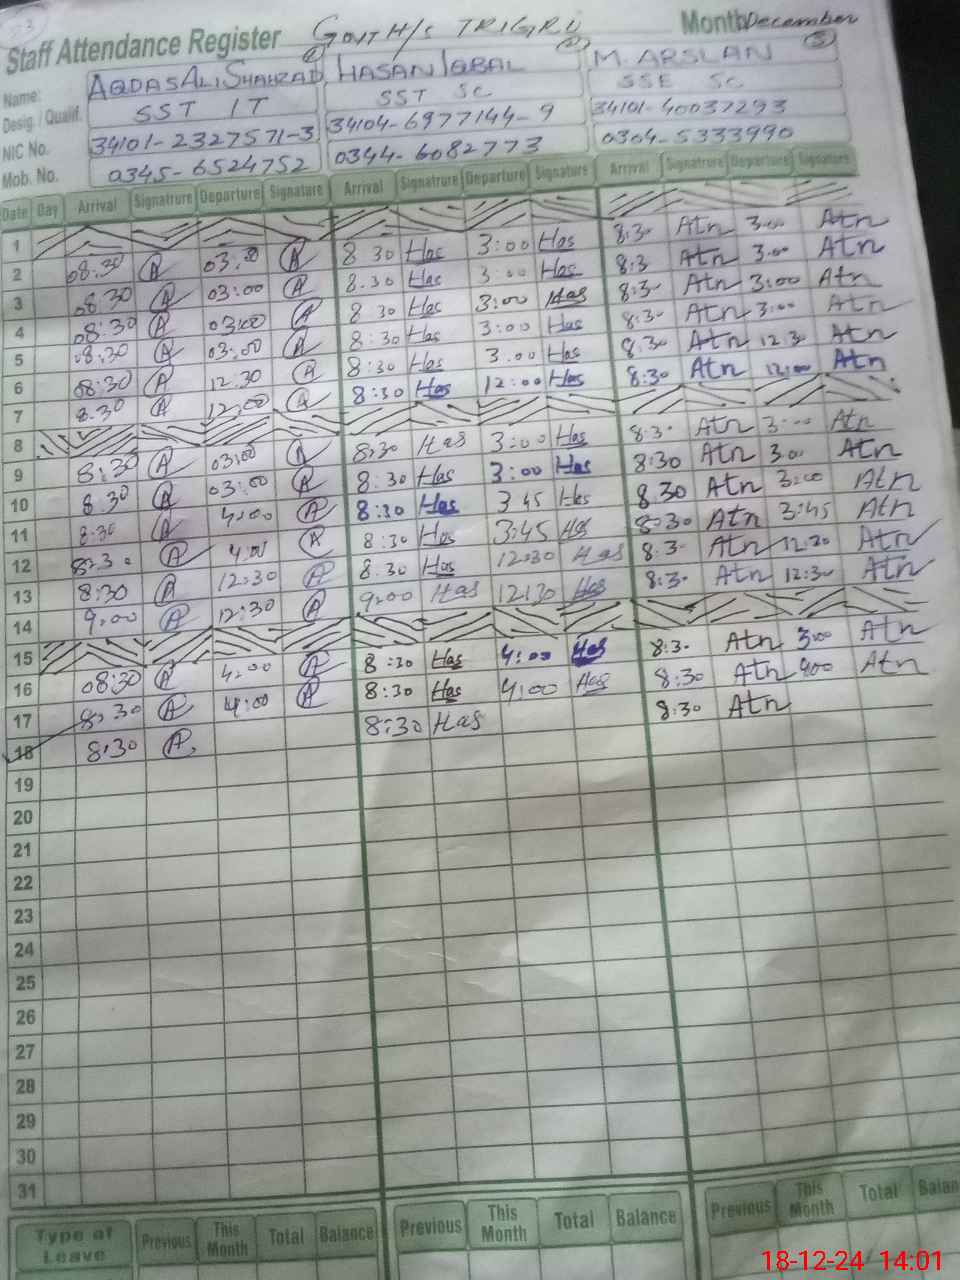 Staff Attendance Register GOVT H/S TRIGRI Month December
Name: AQDAS ALI SHAHZAD HASAN IQBAL M. ARSLAN
Desig. / Qualif. SST IT SST SC SSE SC
NIC No. 34101-2327571-3 34104-6977144-9 34101-40037293
Mob. No. 0345-6524752 0344-6082773 0304-5333990
Date Day Arrival Signatrure Departure Signature Arrival Signatrure Departure Signature Arrival Signatrure Departure Signature
1
2 08:30 A 03:00 A 8 30 Has 3:00 Has 8:3- Atn 3.00 Atn
3 08:30 A 03:00 A 8.30 Has 3:00 Has 8:3 Atn 3.00 Atn
4 08:30 A 03:00 A 8 30 Has 3:00 Has 8:3- Atn 3:00 Atn
5 08:30 A 03:00 A 8:30 Has 3:00 Has 8:3- Atn 3:00 Atn
6 08:30 A 12:30 A 8:30 Has 3.00 Has 8:30 Atn 12:30 Atn
7 8.30 A 12:00 A 8:30 Has 12:00 Has 8:30 Atn 12:00 Atn
8
9 8:30 A 03:00 A 8:30 Has 3:00 Has 8:3- Atn 3:00 Atn
10 8:30 A 03:00 A 8:30 Has 3:00 Has 8:30 Atn 3.00 Atn
11 8:30 A 4:00 A 8:30 Has 3 45 Has 8.30 Atn 3:00 Atn
12 8:30 A 4:00 A 8:30 Has 3:45 Has 8:30 Atn 3:45 Atn
13 8:30 A 12:30 A 8:30 Has 12:30 Has 8:3- Atn 12:30 Atn
14 9:00 A 12:30 A 9:00 Has 12:30 Has 8:3- Atn 12:30 Atn
15
16 08:30 A 4:00 A 8:30 Has 4:00 Has 8:3- Atn 3:00 Atn
17 8:30 A 4:00 A 8:30 Has 4:00 Has 8:30 Atn 4:00 Atn
18 8:30 A 8:30 Has 8:30 Atn
19
20
21
22
23
24
25
26
27
28
29
30
31
Type of Leave Previous This Month Total Balance Previous This Month Total Balance Previous This Month Total
18-12-24 14:01